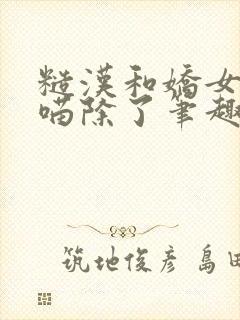 糙漢和嬌女
喵除了筆趣
筑地俊彥 島田